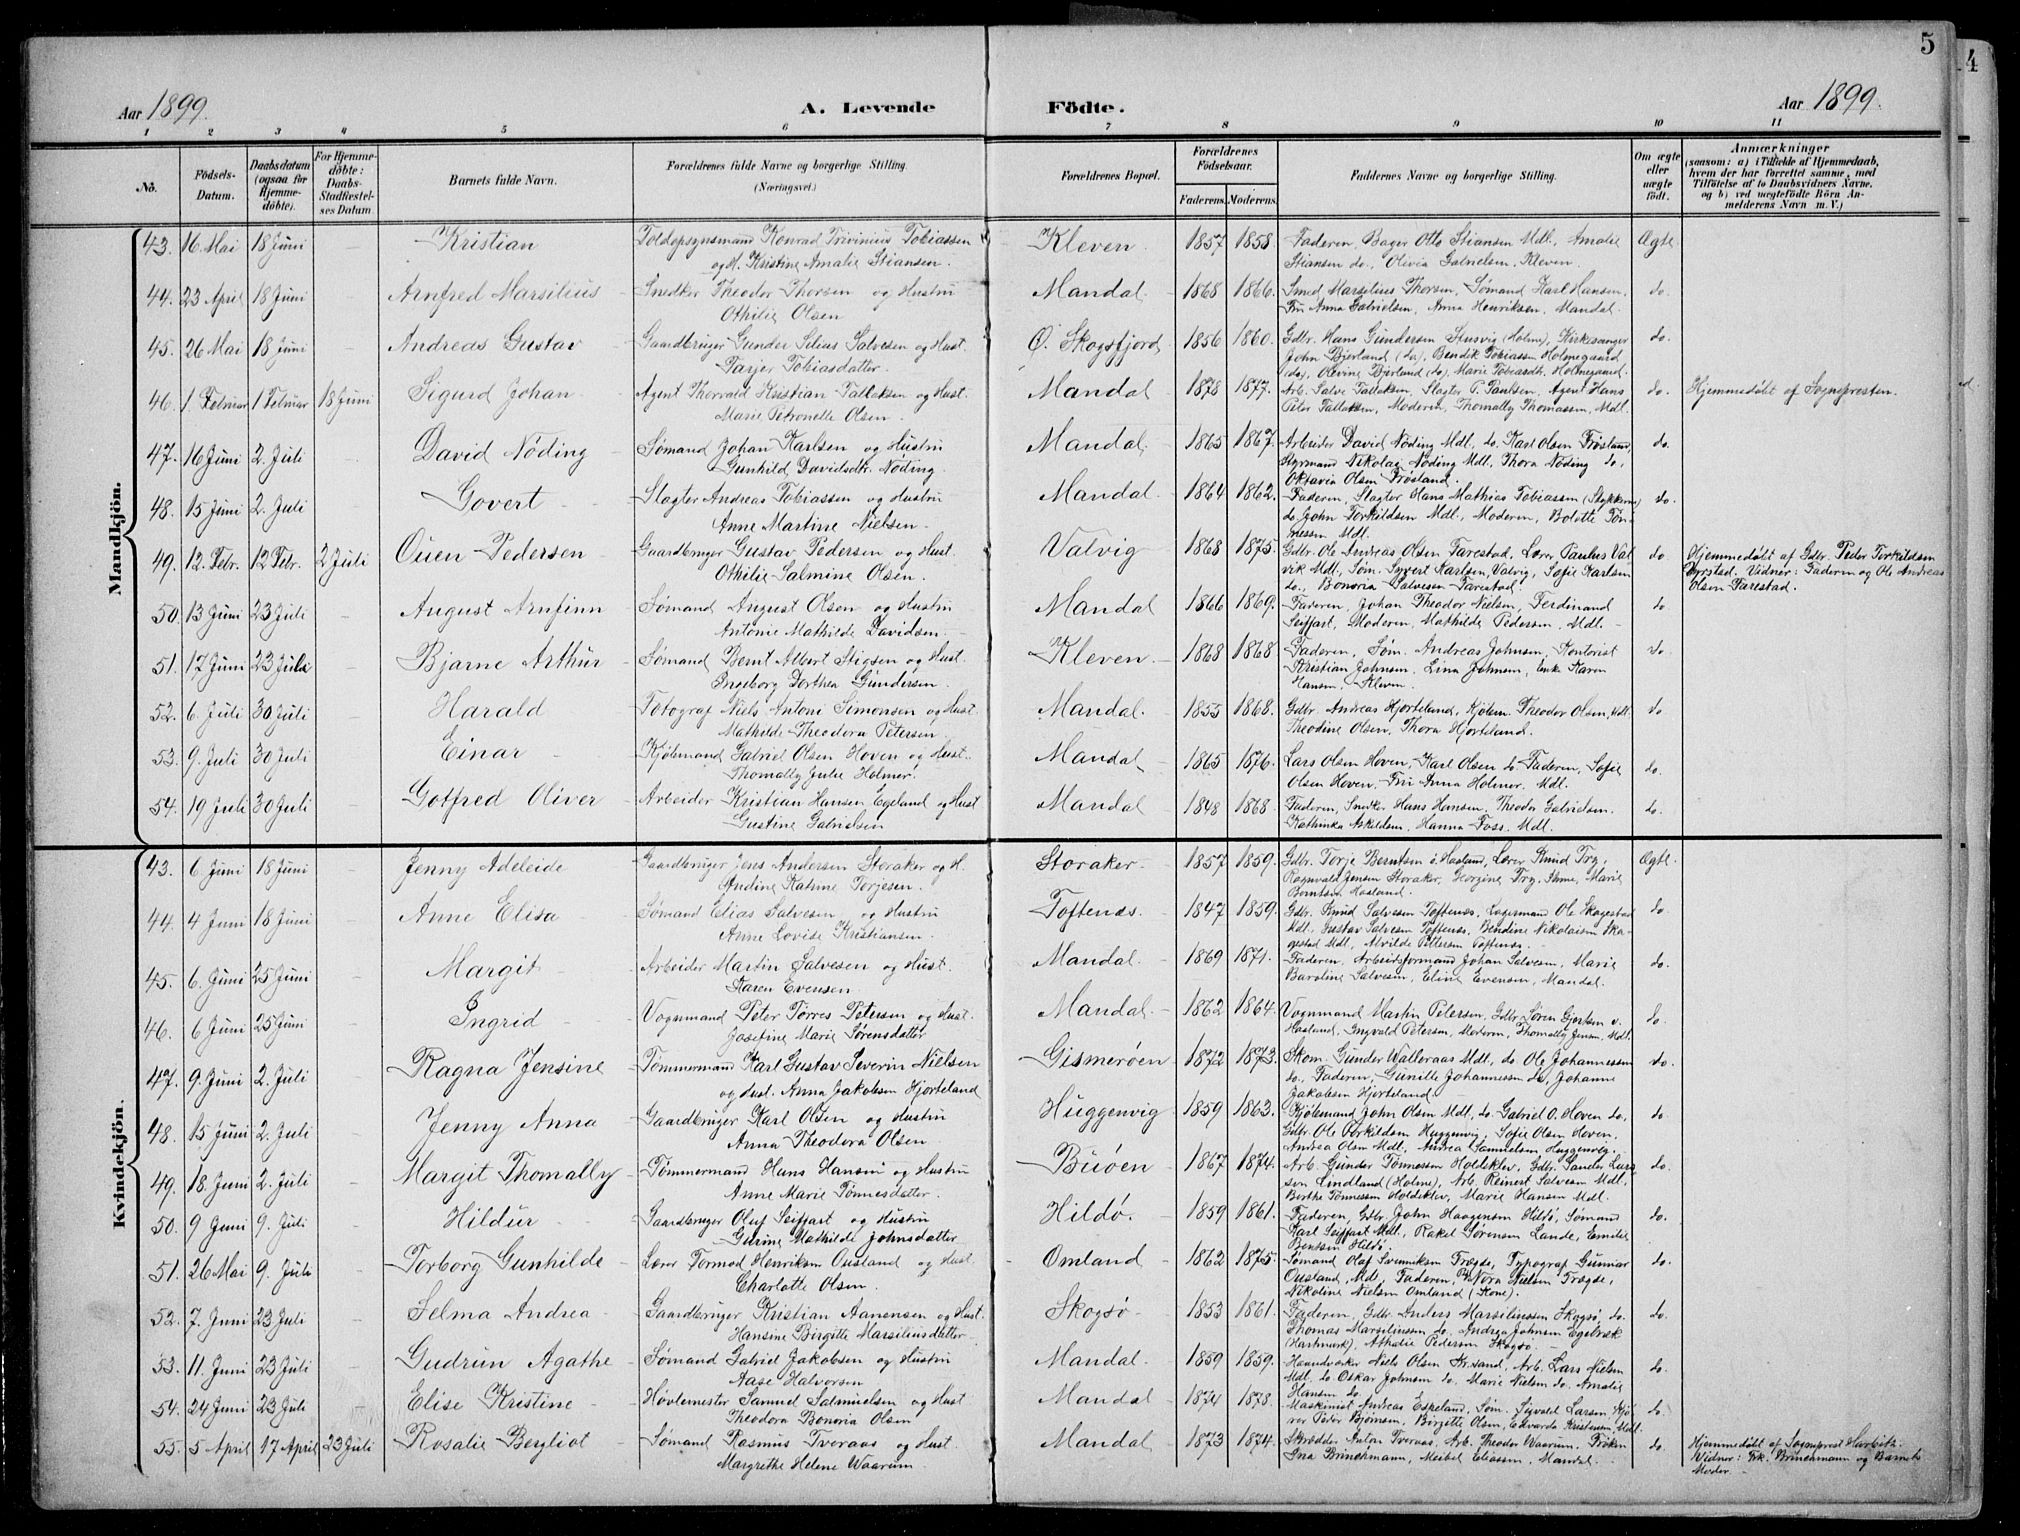 5
4
Aar 1899.
A. Levende
Födte.
Aar 1899.
1 2 3 4 5 6 7 8 9 10 11
No.
Födsels-Datum.
Daabsdatum (ogsaa for Hjemme-döbte).
For Hjemme-döbte: Daabs-Stadfæstel-ses Datum
Barnets fulde Navn.
Forældrenes fulde Navne og borgerlige Stilling. (Næringsvei.)
Forældrenes Bopæl.
Forældrenes Födselsaar.
Faderens. Moderens.
Faddernes Navne og borgerlige Stilling.
Om ægte eller uægte födt.
Anmærkninger
(saasom: a) i Tilfælde af Hjemmedaab, hvem der har forrettet samme, med Tilföielse af to Daabsvidners Navne, og b) ved uægtefödte Börn An-melderens Navn m. V.)
Mandkjön.
43. 16 Mai 18 Juni – Kristian Toldopsynsmand Konrad Trivinius Tobiassen Kleven. 1857 1858. Faderen, Bager Otto Stiansen Mdl., Amalie Ægte.
og H. Kristine Amalie Stiansen. Stiansen do., Olivia Gabrielsen, Kleven.
44. 23 April 18 Juni – Arnfred Marsilius Snedker Theodor Thorsen og Hustru Mandal 1868 1866. Smed Marsilius Thorsen, Sømand Karl Hansen, do.
Othilie Olsen Fru Anna Gabrielsen, Anna Henriksen, Mandal.
45. 26 Mai 18 Juni – Andreas Gustav Gaardbruger Gunder Selius Salvesen og Hust. Ø. Skogsfjord 1856 1860. Gdbr. Hans Gundersen Stusvig (Holme), Kirkesanger do.
Tarjer Tobiasdatter. John Bjerland (do), Bendik Tobiassen Holmegaard
(do), Olevine Bjerland (do), Marie Tobiasdt. Holmegaard.
46. 1 Februar 1 Februar 18 Juni Sigurd Johan Agent Thorvald Kristian Tallaksen og Hust. Mandal 1878 1877. Arb. Salve Tallaksen, Slagter P. Paulsen, Agent Hans do Hjemmedøbt af Sognepresten.
Marie Petronelle Olsen. Peter Tallaksen, Moderen, Thomally Thomassen, Mdl.
47. 16 Juni 2. Juli David Nöding Sømand Johan Karlsen og Hustru Mandal. 1865 1867. Arbeider David Nöding Mdl, do. Karl Olsen Frøsland, do.
Gunhild Davidsdtr. Nöding. Styrmand Nikolai Nöding Mdl., Thora Nöding do,
Oktavia Olsen Frøsland.
48. 15 Juni 2. Juli – Govert Slagter Andreas Tobiassen og Hustru Mandal. 1864 1862. Faderen, Slagter Hans Mathias Tobiassen do.
Anne Martine Nielsen. do. John Torkildsen Mdl., Moderen, Bolette Tön-
nessen Mdl.
49. 12. Febr. 12 Febr. 2 Juli Ouen Pedersen Gaardbruger Gustav Pedersen og Hust. Valvig 1868 1875. Gdbr. Ole Andreas Olsen Farestad, Lærer Paulus Val- do Hjemmedøbt af Gdbr. Peder Torkildsen
Othilie Salmine Olsen. vik Mdl., Søm. Syvert Karlsen, Valvig, Sofie Karlsen Vidner: Faderen og Ole Andreas
do., Bonoria Salvesen Farestad. Olsen Farestad.
50. 13 Juni 23 Juli – August Arnfinn Sømand August Olsen og Hustru Mandal 1866 1869. Faderen, Johan Theodor Nielsen, Ferdinand do
Antonie Mathilde Davidsen. Seiffart, Moderen, Mathilde Pedersen, Mdl.
51. 17 Juni 23 Juli Bjarne Arthur Sømand Bernt Albert Stigsen og Hust. Kleven. 1868 1868 Faderen, Søm. Andreas Johnsen, Kontorist do.
Ingeborg Dorthea Gundersen. Kristian Johnsen, Lina Johnsen, Enke Karen
Hansen, Kleven.
52. 6. Juli 30 Juli – Harald Fotograf Niels Antoni Simonsen og Hust. Mandal. 1855 1868. Gdbr. Andreas Hjorteland, Kjøbm. Theodor Olsen, Mdl. do
Mathilde Theodora Petersen Theodine Olsen, Thora Hjorteland.
53. 9. Juli 30 Juli – Einar Kjøbmand Gabriel Olsen Hoven og Hust. Mandal 1865 1876. Lars Olsen Hoven, Karl Olsen do. Faderen, Sofie do.
Thomally Julie Holmer. Olsen Hoven, Fru Anna Holmer. Mdl.
54. 19 Juli 30 Juli – Gotfred Oliver Arbeider Kristian Hansen Egeland og Hust Mandal 1848 1868. Faderen, Snedker Hans Hansen, Theodor Gabrielsen. do.
Gustine Gabrielsen Kathinka Askildsen, Hanna Foss. Mdl.
Kvindekjön.
43. 6 Juni 18 Juni Jenny Adeleide Gaardbruger Jens Andersen Storaker og H. Storaker 1857 1859. Gdbr. Torje Berntsen i Hasland, Lærer Knud Try, Ægte
Andine Katrine Torjesen. Ragnvald Jensen Storaker, Georgine Try, Marie
Berntsen Hasland.
44. 4 Juni 18 Juni – Anne Elisa Sømand Elias Salvesen og Hustru Toftenæs. 1847 1859. Gdbr. Knud Salvesen Toftenæs, Lagermand Ole Skagestad do.
Anne Lovise Kristiansen. Mdl, Gustav Salvesen Toftenæs, Bendine Nikolaisen Ska-
gestad Mdl, Alvilde Pettersen Toftenæs.
45. 6. Juni 25 Juni Margit Arbeider Martin Salvesen og Hust. Mandal. 1869 1871. Faderen, Arbeidsformand Johan Salvesen, Marie do.
Karen Evensen. Baroline Salvesen, Eline Evensen, Mandal.
46. 6 Juni 25 Juni – Ingrid Vognmand Peter Tørres Petersen og Hust. Mandal 1862 1864. Vognmand Martin Petersen, Gdbr. Søren Gjertsen v. do.
Josefine Marie Sørensdatter Hasland, Ingvald Petersen, Moderen, Thomally Jensen, Mdl.
47. 9. Juni 2. Juli Ragna Jensine Tømmermand Karl Gustav Severin Nielsen Gismerøen 1872 1873. Skom. Gunder Walleraas Mdl, do Ole Johannessen do.
og Hust. Anna Jakobsen Hjorteland do., Faderen, Gunille Johannessen do, Johanne
Jakobsen Hjorteland
48. 15 Juni 2. Juli – Jenny Anna Gaardbruger Karl Olsen og Hustru Huggenvig 1859 1863. Kjøbmand John Olsen Mdl., do. Gabriel O. Hoven do, do.
Anna Theodora Olsen. Gdbr. Ole Torkildsen Huggenvig, Sofie Olsen Hoven,
Andrea Olsen Mdl, Andrea Samuelsen Huggenvig.
49. 18. Juni 2. Juli – Margit Thomally Tømmermand Hans Hansen og Hustru Buöen 1867 1874. Arb. Gunder Tønnessen Holdeklev, Gdbr. Sander Lars- do.
Anne Marie Tönnesdatter. sen Lindland (Holme), Arb. Reinert Salvesen Mdl,
Berthe Tønnessen Holdeklev, Marie Hansen Mdl.
50. 9 Juni 9. Juli – Hildur Gaardbruger Oluf Seiffart og Hustru Hildø. 1859 1861. Faderen, Gdbr. John Haagensen Hildø, Sømand do.
Gurine Mathilde Johnsdatter Karl Seiffart Mdl., Rakel Sørensen Lande, Emilie
Bentsen Hildø.
51. 26 Mai 9. Juli – Torborg Gunhilde Lærer Tormod Henriksen Ousland og Hust. Omland 1862 1875. Sømand Olaf Svenniksen Trægde, Typograf Gunnar do.
Charlotte Olsen Ousland, Mdl, Faderen, Nora Nielsen Trægde,
Nikoline Nielsen Omland (Kone).
52. 7. Juni 23 Juli – Selma Andrea Gaardbruger Kristian Aanensen og Hust. Skogsø 1853 1861. Faderen, Gdbr. Anders Marsiliussen Skogsø, do. do.
Hansine Birgitte Marsiliusdatter Thomas Marsiliussen do. Andrea Johnsen Egebæk
(Hartmark), Athalie Pedersen Skogsø.
53. 11. Juni 23 Juli – Gudrun Agathe Sømand Gabriel Jakobsen og Hustru Mandal. 1859 1859. Haandverker Niels Olsen Kr.sand, Arb. Lars Nielsen do.
Aase Halvorsen Mdl. do Oskar Johnsen do. Marie Nielsen do. Amalie
Hansen do.
54. 24 Juni 23 Juli – Elise Kristine Høvlemester Samuel Salmielsen og Hust Mandal 1874 1878. Maskinist Andreas Espeland, Søm. Sigvald Larsen, do.
Theodora Bonoria Olsen Peter Bjørnsen, Birgitte Olsen, Edvarda Kristensen Mdl.
55. 5 April 17 April 23 Juli Rosalie Bergliot Sømand Rasmus Tveraas og Hust. Mandal 1873 1874. Skrædder Anton Tveraas, Arb. Theodor Waarum, Frøken do. Hjemmedøbt af Sogneprest Harbitz.
Margrethe Helene Waarum. Ina Brinchmann, Meibel Eliassen, Mandal. Vidner: Frk. Brinchmann og Barnets
Moder.